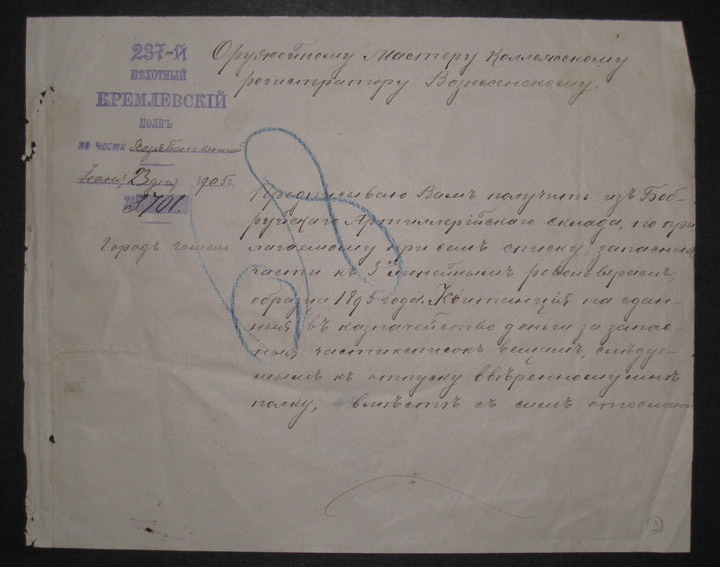 237-й
ПѢХОТНЫЙ
КРЕМЛЕВСКІЙ
ПОЛКЪ
по части Хозяйственной
Іюня, 23 дня 1905 г.
№ 3701.
Городъ
Оружейному Мастеру Коллежскому
регистратору Вознесенскому.
Предписываю Вамъ получить изъ Боб-
руйскаго Артиллерійскаго склада, по при
лагаемому при семъ списку, запасныя
части къ 3хъ линейнымъ револьверамъ,
образца 1895 года. Квитанція на сдан-
ныя въ казначейство деньги за запас-
ныя части и списокъ вещамъ, слѣдуе-
мымъ къ отпуску ввѣренному мнѣ
полку, вмѣстѣ съ симъ отосланы